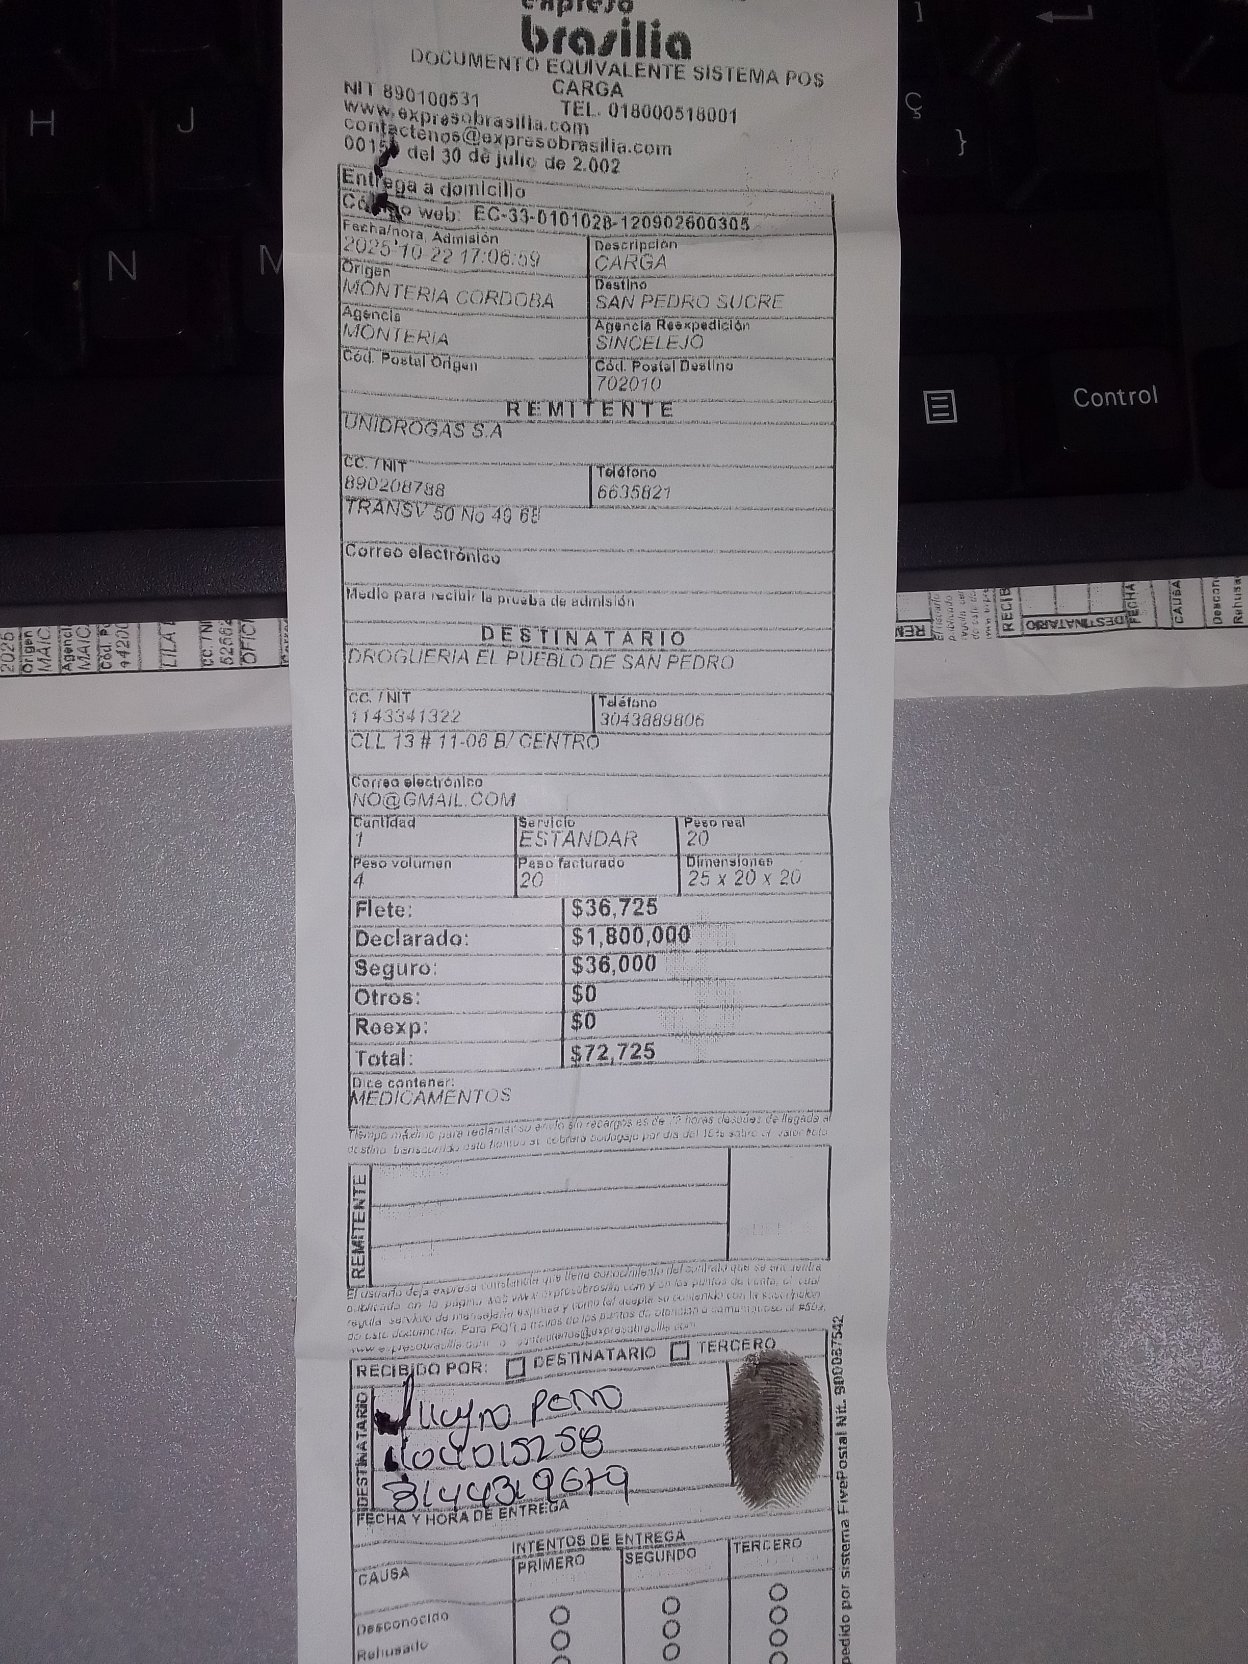 expreso
brasilia
DOCUMENTO EQUIVALENTE SISTEMA POS
CARGA
NIT 890100531 TEL. 018000518001
www.expresobrasilia.com
contactenos@expresobrasilia.com
del 30 de julio de 2.002
Entrega a domicilio
Código web: EC-33-0101028-120902600305
Fecha/hora, Admisión
2025 10 22 17:06:59
Descripción
CARGA
Origen
MONTERIA CORDOBA
Destino
SAN PEDRO SUCRE
Agencia
MONTERIA
Agencia Reexpedición
SINCELEJO
Cód. Postal Origen
Cód. Postal Destino
702010
REMITENTE
UNIDROGAS S.A
CC. / NIT
890208788
Teléfono
6635821
TRANSV 50 No 49 65
Correo electrónico
Medio para recibir la prueba de admisión
DESTINATARIO
DROGUERIA EL PUEBLO DE SAN PEDRO
CC. / NIT
1143341322
Teléfono
3043889806
CLL 13 # 11-06 B/ CENTRO
Correo electrónico
NO@GMAIL.COM
Cantidad
1
Servicio
ESTANDAR
Peso real
20
Peso volumen
4
Peso facturado
20
Dimensiones
25 x 20 x 20
Flete: $36,725
Declarado: $1,800,000
Seguro: $36,000
Otros: $0
Reexp: $0
Total: $72,725
Dice contener:
MEDICAMENTOS
Tiempo máximo para reclamar su envío sin recargos es de horas después de llegada al
REMITENTE
El usuario deja expresa constancia que tiene conocimiento del contrato que se encuentra
publicado en la página web www.expresobrasilia.com y en los puntos de venta, el cual
regula servicio de mensajería expresa y como tal acepta su contenido con la suscripción
de este documento. Para PQR a través de los puntos de atención o comunicarse al #503,
RECIBIDO POR: DESTINATARIO TERCERO
DESTINATARIO
1104015258
3144319679
FECHA Y HORA DE ENTREGA
INTENTOS DE ENTREGA
CAUSA PRIMERO SEGUNDO TERCERO
Desconocido
Rehusado
pedido por sistema FivePostal Nit. 900087542
H
J
N
M
Ç
}
Control
2025
Origen
MAIC
Agenci
MAIC
Cód. P
LILA
CC. / NI
OFIC
REM
RECIB
DESTINATARIO
FECHA
CAUSA
Descon
Rehusa